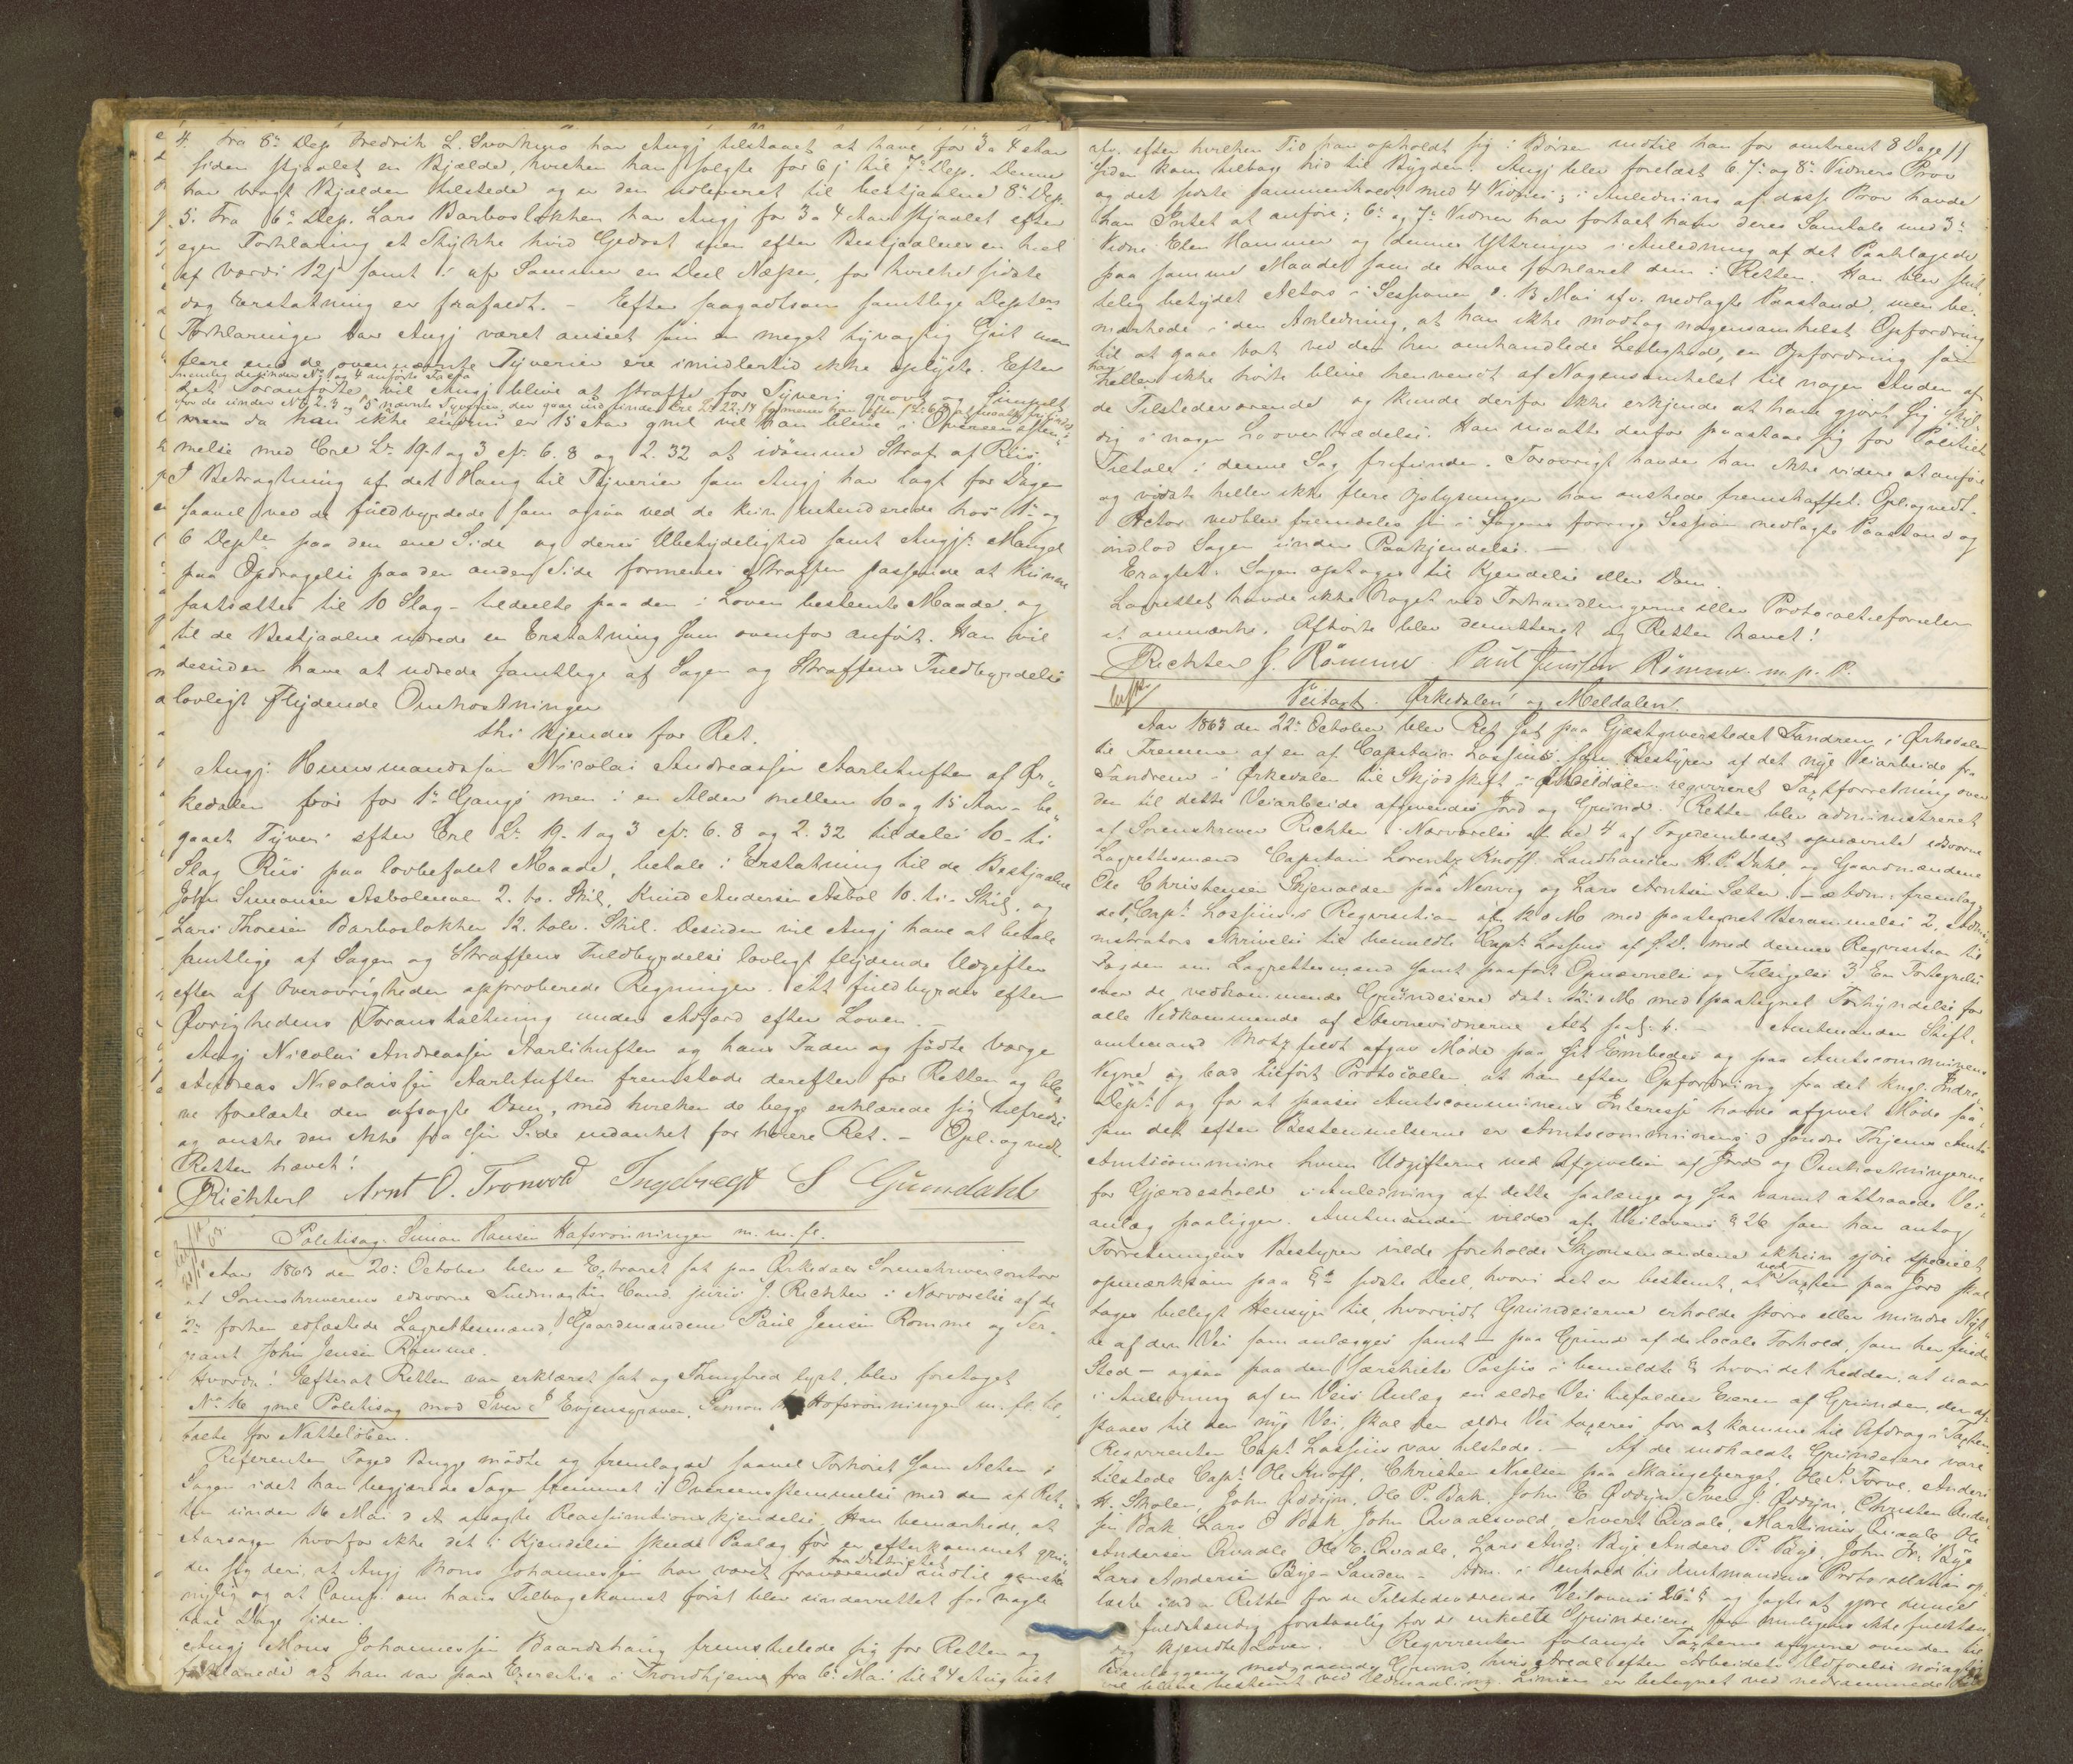 4. Fra 8de Dep. Fredrik L. Svorkmo har Angj tilstaaet at have for 3 a 4 Aar
siden stjaalet en Bjælde, hvilken han solgte for 6 ß til 7de Dep. Denne
har bragt Bjælden tilstede og er den udleveret til bestjaalne 8de Dep.
5. Fra 6te Dep. Lars Barbosløkken har Angj for 3 a 4 Aar stjaalet efter
egen Forklaring et Stykke hvid Gedost men efter Bestjaalnes en heel
af Værdi 12 ß samt i afv. Sommer en Deel Næper, for hvilke sidste
dog Erstatning er frafaldt. – Efter saagodtsom samtlige Depters
Forklaringer har Angj været anseet som en meget tyvagtig Gut men
flere end de ovennævnte Tyverier ere imidlertid ikke oplyste. Efter
det Foranførte vil Angj blive at straffe for Tyveri grovt og simpelt
men da han ikke endnu er 15 Aar gml vil han blive i Overeensstem-
melse med Crl Lv. 19-1 og 3 cfr. 6. 8 og 2. 32 at idømme Straf af Riis.
I Betragtning af det Hang til Tyverier som Angj har lagt for Dagen
saavel ved de fuldbyrdede som ogsaa ved de kun intenderede hos 1ste og
6 Depte paa den ene Side og deres Ubetydelighed samt Angjs Mangel
paa Opdragelse paa den anden Side formenes Straffen passende at kunne
fastsættes til 10 Slag – tildeelte paa den i Loven bestemte Maade, og
til de Bestjaalne udrede en Erstatning som ovenfor anført. Han vil
desuden have at udrede samtlige af Sagen og Straffens Fuldbyrdelse
lovligt flydende Omkostninger
thi kjendes for Ret.
Angj. Huusmandssøn Nicolai Andreassen Aarlituften af Ør-
kedalen bør for 1ste Gangs men i en Alder mellem 10 og 15 Aar – be-
gaaet Tyveri efter Crl Lv. 19-1 og 3 cfr. 6. 8 og 2. 32 tildeles 10 – ti
Slag Riis paa lovbefalet Maade, betale i Erstatning til de Bestjaalne
John Simonsen Asbolmoen 2. to. Skil, Knud Andersen Asbøl 10. ti. Skil. og
Lars Thoresen Barbosløkken 12. tolv. Skil. Desuden vil Angj have at betale
samtlige af Sagen og Straffens Fuldbyrdelse lovligt flydende Udgifter
efter af Overøvrigheden approberede Regninger. At fuldbyrdes efter
Øvrighedens Foranstaltning under Adfærd efter Loven.
Angj Nicolai Andreassen Aarlituften og hans Fader og fødte Værge
Andreas Nicolaissen Aarlituften fremstode derefter for Retten og ble-
ve forelæste den afsagte Dom, med hvilken de begge erklærede sig tilfredse
og ønske den ikke fra sin Side indanket for høiere Ret. – Opl. og vedt.
Retten hævet!
Richter Arnt O. Tronvold Ingebregt S Gumdahl
Politisag. Simon Hansen Hafsrønningen m. m. fl.
Aar 1863 den 20de October blev en Extraret sat paa Ørkedals Sorenskrivercontor
af Sorenskriverens edsvorne Fuldmægtig Cand. juris J. Richter i Nærværelse af de
2de forhen edfæstede Lagrettesmænd, Gaardmændene Paul Jensen Rømme og Ser-
gant John Jensen Rømme.
Hvorda! Efterat Retten var erklæret sat og Thingfred lyst, blev foretaget
No 16 gml Politisag mod Iver E Evjensgraven, Simon H Hafsrønningen m. fl. til-
talte for Natteløben.
Referenten Foged Bugge mødte og fremlagde saavel Forhøret som Acten i
Sagen idet han begjærede Sagen fremmet i Overeensstemmelse med den af Ret-
ten under 16 Mai d A afsagte Reassumtionskjendelse. Han bemærkede, at
Aarsagen hvorfor ikke det i Kjendelsen skeede Paalæg før er efterkommet grun-
der sig deri, at Angj Mons Johannessen har været fraværende fra Districtet indtil ganske
nylig og at Comp. om hans Tilbagekomst først blev underrettet for nogle
faae Dage siden.
Angj Mons Johannessen Baardshaug fremstillede sig for Retten og
forklarede at han var paa Exercitie i Trondhjem fra 6te Mai til 24 August
afv. efter hvilken Tid han opholdt sig i Børsen indtil han for omtrent 8 Dage 11
siden kom tilbage hid til Bygden. Angj blev forelæst 6. 7de og 8de Vidners Prov
og det sidste sammenholdt med 4 Vidnes; i Anledning af disse Prov havde
han Intet at anføre; 6te og 7de Vidner har fortalt ham deres Samtale med 3de
Vidne Elen Hammer og dennes Yttringer i Anledning af det Paaklagede
paa samme Maade som de have forklaret dem i Retten. Han blev skil-
telig betydet Actors i Sessionen d. 13 Mai afv. nedlagte Paastand, men be-
mærkede i den Anledning, at han ikke modtog nogensomhelst Opfordring
til at gaae bort ved den her omhandlede Leilighed, en Opfordring som
han heller ikke hørte blive henvendt af Nogensomhelst til nogen Anden af
de Tilstedeværende og kunde derfor ikke erkjende at have gjort sig skyl-
dig i nogen Lovovertrædelse. Han maatte derfor paastaae sig for Politiets
Tiltale i denne Sag frifunden. Forøvrigt havde han ikke videre at anføre
og vidste heller ikke flere Oplysninger han ønskede fremskaffet. Opl. og vedt.
Actor vedblev fremdeles sin i Sagens forrige Session nedlagte Paastand og
indlod Sagen under Paakjendelse. –
Eragtet: Sagen optages til Kjendelse eller Dom.
Lagrettet havde ikke Noget ved Forhandlingerne eller Protocoltilførselen
at anmærke. Afhørte blev demitteret og Retten hævet!
Richter J. Rømme Paul Jensen Rømme m. p. P.
Veitaxt. Ørkedalen og Meldalen.
Aar 1863 den 22de October blev Ret sat paa Gjæstgiverstedet Fandrem i Ørkedalen
til Fremme af en af Capitain Lossius som Bestyrer af det nye Veiarbeide fra
Fandrem i Ørkedalen til Skjødskift i Meldalen reqvireret Taxtforretning over
den til dette Veiarbeide afgivendes Jord og Grund. Retten blev administreret
af Sorenskriver Richter i Nærværelse af de 4 af Fogedembedet opnævnte edsvorne
Lagrettesmænd Capitain Lorentz Knoff, Landhandler H. P. Dahl, og Gaardmændene
Ole Christensen Skjenalden paa Nervig og Lars Arntsen Sæter. – Adm. fremlag-
de 1, Capt. Lossius's Reqvisition af 12 d M med paategnet Berammelse 2, Admi-
nistrators Skrivelse til bemeldte Capt. Lossius af s. D. med dennes Reqvisition til
Fogden om Lagrettesmænd samt paaført Opnævnelse og Tilsigelse 3 En Fortegnelse
over de vedkommende Grundeiere dat. 12. d M med paategnet Forkyndelse for
alle Vedkommende af Stevnevidnerne Alt saal: – Amtmanden Stift-
amtmand Motzfeldt afgav Møde paa sit Embedes og paa Amtscommunens
Vegne og bad tilført Protocollen, at han efter Opfordring fra det kngl. Indre
Dept og for at paasee Amtscommunens Interesse havde afgivet Møde saa-
som det efter Bestemmelserne er Amtscommunens o: søndre Thjems Amts
Amtscommune hvem Udgifterne ved Afgivelsen af Jord og Omkostningerne
for Gjerdeshold i Anledning af dette saalænge og saa varmt attraaede Vei-
anlæg paaligger. Amtmanden vilde af Veilovens § 26 som han antog
Forretningens Bestyrer vilde foreholde Skjønsmændene ikkun gjøre specielt
opmærksom paa §s sidste Deel, hvori det er bestemt, at ved Taxten paa Jord skal
tages billigt Hensyn til, hvorvidt Grundeierne erholde større eller mindre Nyt-
te af den Vei som anlægges samt – paa Grund af de locale Forhold, som her finde
Sted – ogsaa paa den særskilte Passus i bemeldte § hvori det hedder, at naar
i Anledning af en Veis Anlæg en ældre Vei tilfalder Eieren af Grunden, den af-
staaes til den nye Vei, skal den ældre Vei taxeres for at komme til Afdrag i Taxten.
Reqvirenten Capt Lossius var tilstede. – Af de indkaldte Grundeiere vare
tilstede Capt. Ole Knoff, Christen Nielsen paa Skaugebjerget, Ole P. Forve, Anders
H. Skolen, John Oddsyn, Ole P. Bak, John E. Oddsyn, Iver J. Oddsyn, Christen Ander-
sen Bak, Lars O Bak, John Qvaalsvold, Sivert Qvaale, Martinus Qvaale, Ole
Andersen Qvaale, Ole E. Qvaale, Lars And. Bye, Anders P. Bye, John Fr. Bye
Lars Andersen Bye-Sanden – Adm. i Henhold til Amtmandens Protocollation op-
læste inden Retten for de Tilstedeværende Veilovens 26de § og søgte at gjøre denne
fuldstændig forstaaelig for de enkelte Grundeiere, som muligens ikke fuldstæn-
dig kjendte Loven. Reqvirenten forlangte Taxterne afgivne over den til
Veianlægget medgaaende Grund, hvis Areal efter Arbeidets Udførelse nøiagtig
vil blive bestemt ved Udmaaling. Linien er betegnet ved nedrammede